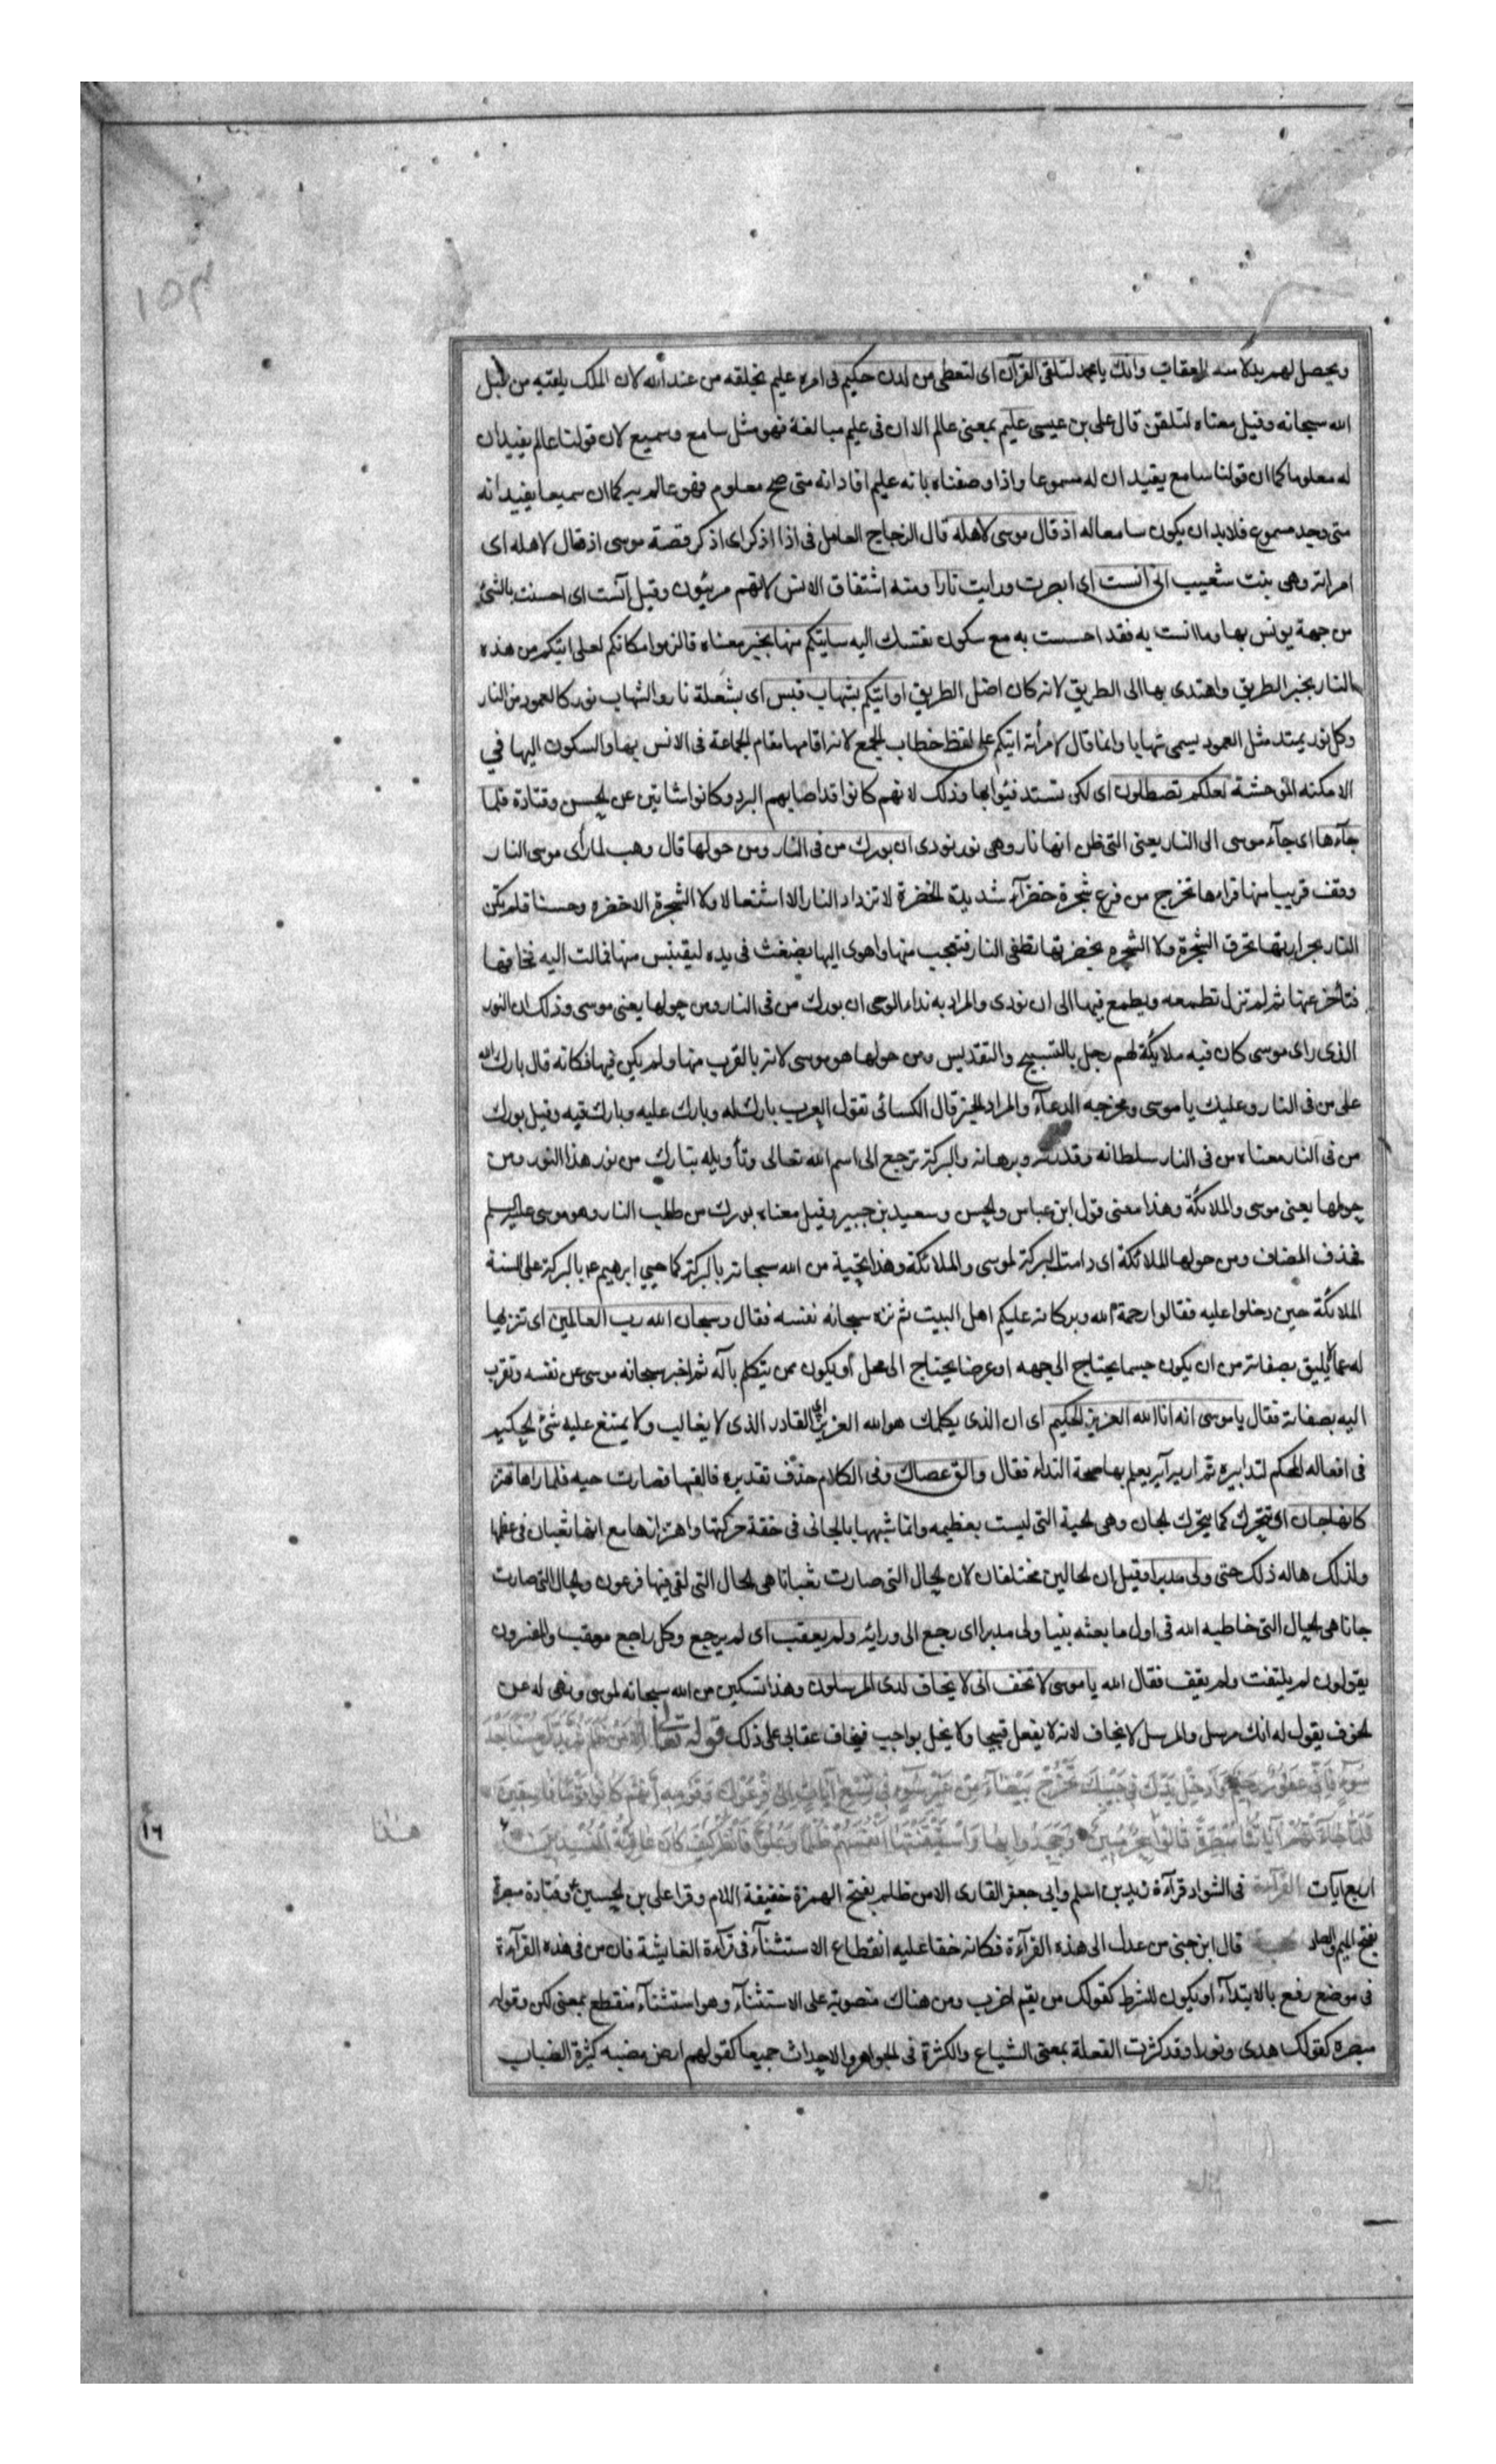 ويحصل لهم بدلا منه العقاب وانك يا محمد لتلقى القرآن اى لتعطى من لدن حكيم فى امره عليم بخلقه من عند الله لان الملك يلقيه من قبل
الله سبحانه وقيل معناه لتلقن قال على بن عيسى عليم بمعنى عالم الا ان فى عليم مبالغة فهو مثل سامع وسميع لان قولنا عالم يفيد ان
له معلوما كما ان قولنا سامع يفيد ان له مسموعا واذا وصفناه بانه عليم افاد انه متى صح معلوم فهو عالم به كما ان سميعا يفيد انه
متى وجد مسموع فلا بد ان يكون سامعا له اذ قال موسى لاهله قال الزجاج العامل فى اذ اذكر اى اذكر قصة موسى اذ قال لاهله اى
امراته وهى بنت شعيب انى انست اى ابصرت ورايت نارا ومنه اشتقاق الانس لانهم مرئيون وقيل آنست اى احسست بالشئ
من جهة يونس بها وما انست به فقد احسست به مع سكون نفسك اليه سآتيكم منها بخبر معناه فالزموا مكانكم لعلى اتيكم من هذه
النار بخبر الطريق واهتدى بها الى الطريق لانه كان اضل الطريق او اتيكم بشهاب قبس اى بشعلة نار والشهاب نور كالعمود من النار
وكل نور يمتد مثل العمود يسمى شهابا وانما قال لامرأته اتيكم على لفظ خطاب الجمع لانه اقامها مقام الجماعة فى الانس بها والسكون اليها في
الامكنه الموحشة لعلكم تصطلون اى لكى تستدفئوا بها وذلك لانهم كانوا قد اصابهم البرد وكانوا شاتين عن الحسن وقتادة فلما
جآءها اى جآء موسى الى النار يعنى التى ظن انها نار وهى نور نودى ان بورك من فى النار ومن حولها قال وهب لما رأى موسى النار
وقف قريبا منها فراها تخرج من فرع شجرة خضرآء شديدة الخضرة لا تزداد النار الا اشتعالا ولا الشجرة الا خضره وحسنا فلم يكن
النار بحرارتها تحرق الشجرة ولا الشجره بخضرتها تطفى النار فتعجب منها واهوى اليها بضغث فى يده ليقتبس منها فمالت اليه فخافها
فتأخر عنها ثم لم تزل تطمعه ويطمع فيها الى ان نودى والمراد به نداء الوحى ان بورك من فى النار ومن حولها يعنى موسى وذلك ان النور
الذى راى موسى كان فيه ملائكة لهم زجل بالتسبيح والتقديس ومن حولها هو موسى لانه بالقرب منها ولم يكن فيها فكانه قال بارك الله
على من فى النار وعليك يا موسى ومخرجه الدعآء والمراد الخبر قال الكسائى تقول العرب بارك له وبارك عليه وبارك فيه وقيل بورك
من فى النار معناه من فى النار سلطانه وقدرته وبرهانه والبركة ترجع الى اسم الله تعالى وتأويله تبارك من نور هذا النور ومن
حولها يعنى موسى والملائكة وهذا معنى قول ابن عباس والحسن وسعيد بن جبير وقيل معناه بورك من طلب النار وهو موسى عليه السلم
فحذف المضاف ومن حولها الملائكة اى دامت البركة لموسى والملائكة وهذا تحية من الله سبحانه بالبركة كما حيى ابرهيم ع بالبركة على السنة
الملائكة حين دخلوا عليه فقالوا رحمة الله وبركاته عليكم اهل البيت ثم نزه سبحانه نفسه فقال وسبحان الله رب العالمين اى تنزيها
له عما لا يليق بصفاته من ان يكون جسما يحتاج الى جهه او عرضا يحتاج الى محل أو يكون ممن يتكلم بآله ثم اخبر سبحانه موسى عن نفسه وتعرف
اليه بصفاته فقال يا موسى انه انا الله العزيز الحكيم اى ان الذى يكلمك هو الله العزيز اى القادر الذى لا يغالب ولا يمتنع عليه شئ الحكيم
فى افعاله المحكم لتدابيره ثم اراه آية يعلم بها صحة النداء فقال والق عصاك وفى الكلام حذف تقديره فالقيها فصارت حيه فلما راها تهتز
كانها جان اى تتحرك كما يتحرك الجان وهى الحية التى ليست بعظيمه وانما شبهها بالجانى فى خفة حركتها واهتزازها مع انها ثعبان فى عظمها
ولذلك هاله ذلك حتى ولى مدبرا وقيل ان الحالين مختلفان لان الحال التى صارت ثعبانا هى الحال التى لقى فيها فرعون والحال التى صارت
جانا هى الحال التى خاطبه الله فى اول ما بعثه نبيا ولى مدبرا اى رجع الى ورائه ولم يعقب اى لم يرجع وكل راجع معقب والمفسرون
يقولون لم يلتفت ولم يقف فقال الله يا موسى لا تخف انى لا يخاف لدى المرسلون وهذا تسكين من الله سبحانه لموسى ونهى له عن
الخوف يقول له انك مرسل والمرسل لا يخاف لانه لا يفعل قبيحا ولا يخل بواجب فيخاف عقابى على ذلك قوله تعالى الا من ظلم ثم بدل حسنا بعد
سوء فإنى غفور رحيم وأدخل يدك فى جيبك تخرج بيضآء من غير سوء فى تسع آيات إلى فرعون وقومه إنهم كانوا قوما فاسقين
فلما جاءتهم آياتنا مبصرة قالوا هذا سحر مبين وجحدوا بها واستيقنتها أنفسهم ظلما وعلوا فانظر كيف كان عاقبة المفسدين
هذا
اربع آيات القرآءة فى الشواذ قرآءة زيد بن اسلم وابى جعفر القارى الا من ظلم بفتح الهمزة خفيفة اللام وقرا على بن الحسين ع وقتادة مبصرة
بفتح الميم والصاد الحجة قال ابن جنى من عدل الى هذه القرآءة فكانه خفا عليه انقطاع الاستثنآء فى قرآءة الفاشية فان من فى هذه القرآءة
فى موضع رفع بالابتدآء او يكون للشرط كقولك من يقم اضرب ومن هناك منصوبة على الاستثنآء وهو استثنآء منقطع بمعنى لكن وقوله
مبصره كقولك هدى ونورا وقد كثرت المفعلة بمعنى الشياع والكثرة فى الجواهر والاحداث جميعا كقولهم ارض مضبه كثيرة الضباب